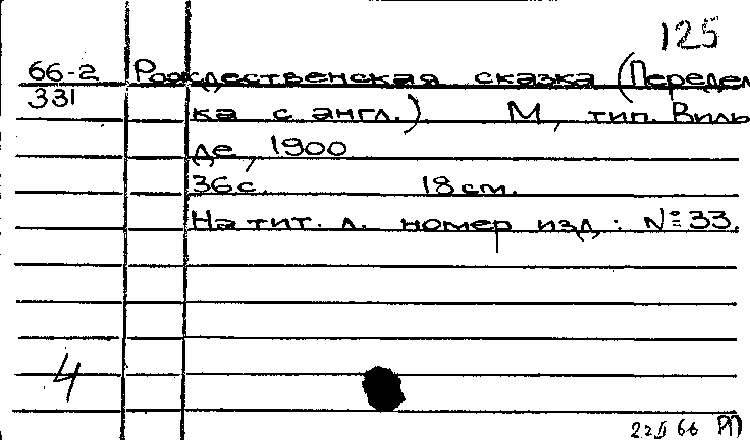 125
66-2 Рождественская сказка (Передел
331 ка с англ.) М, тип. Виль
де, 1900
36 с. 18 см.
На тит. л. номер изд.: № 33.
4
66